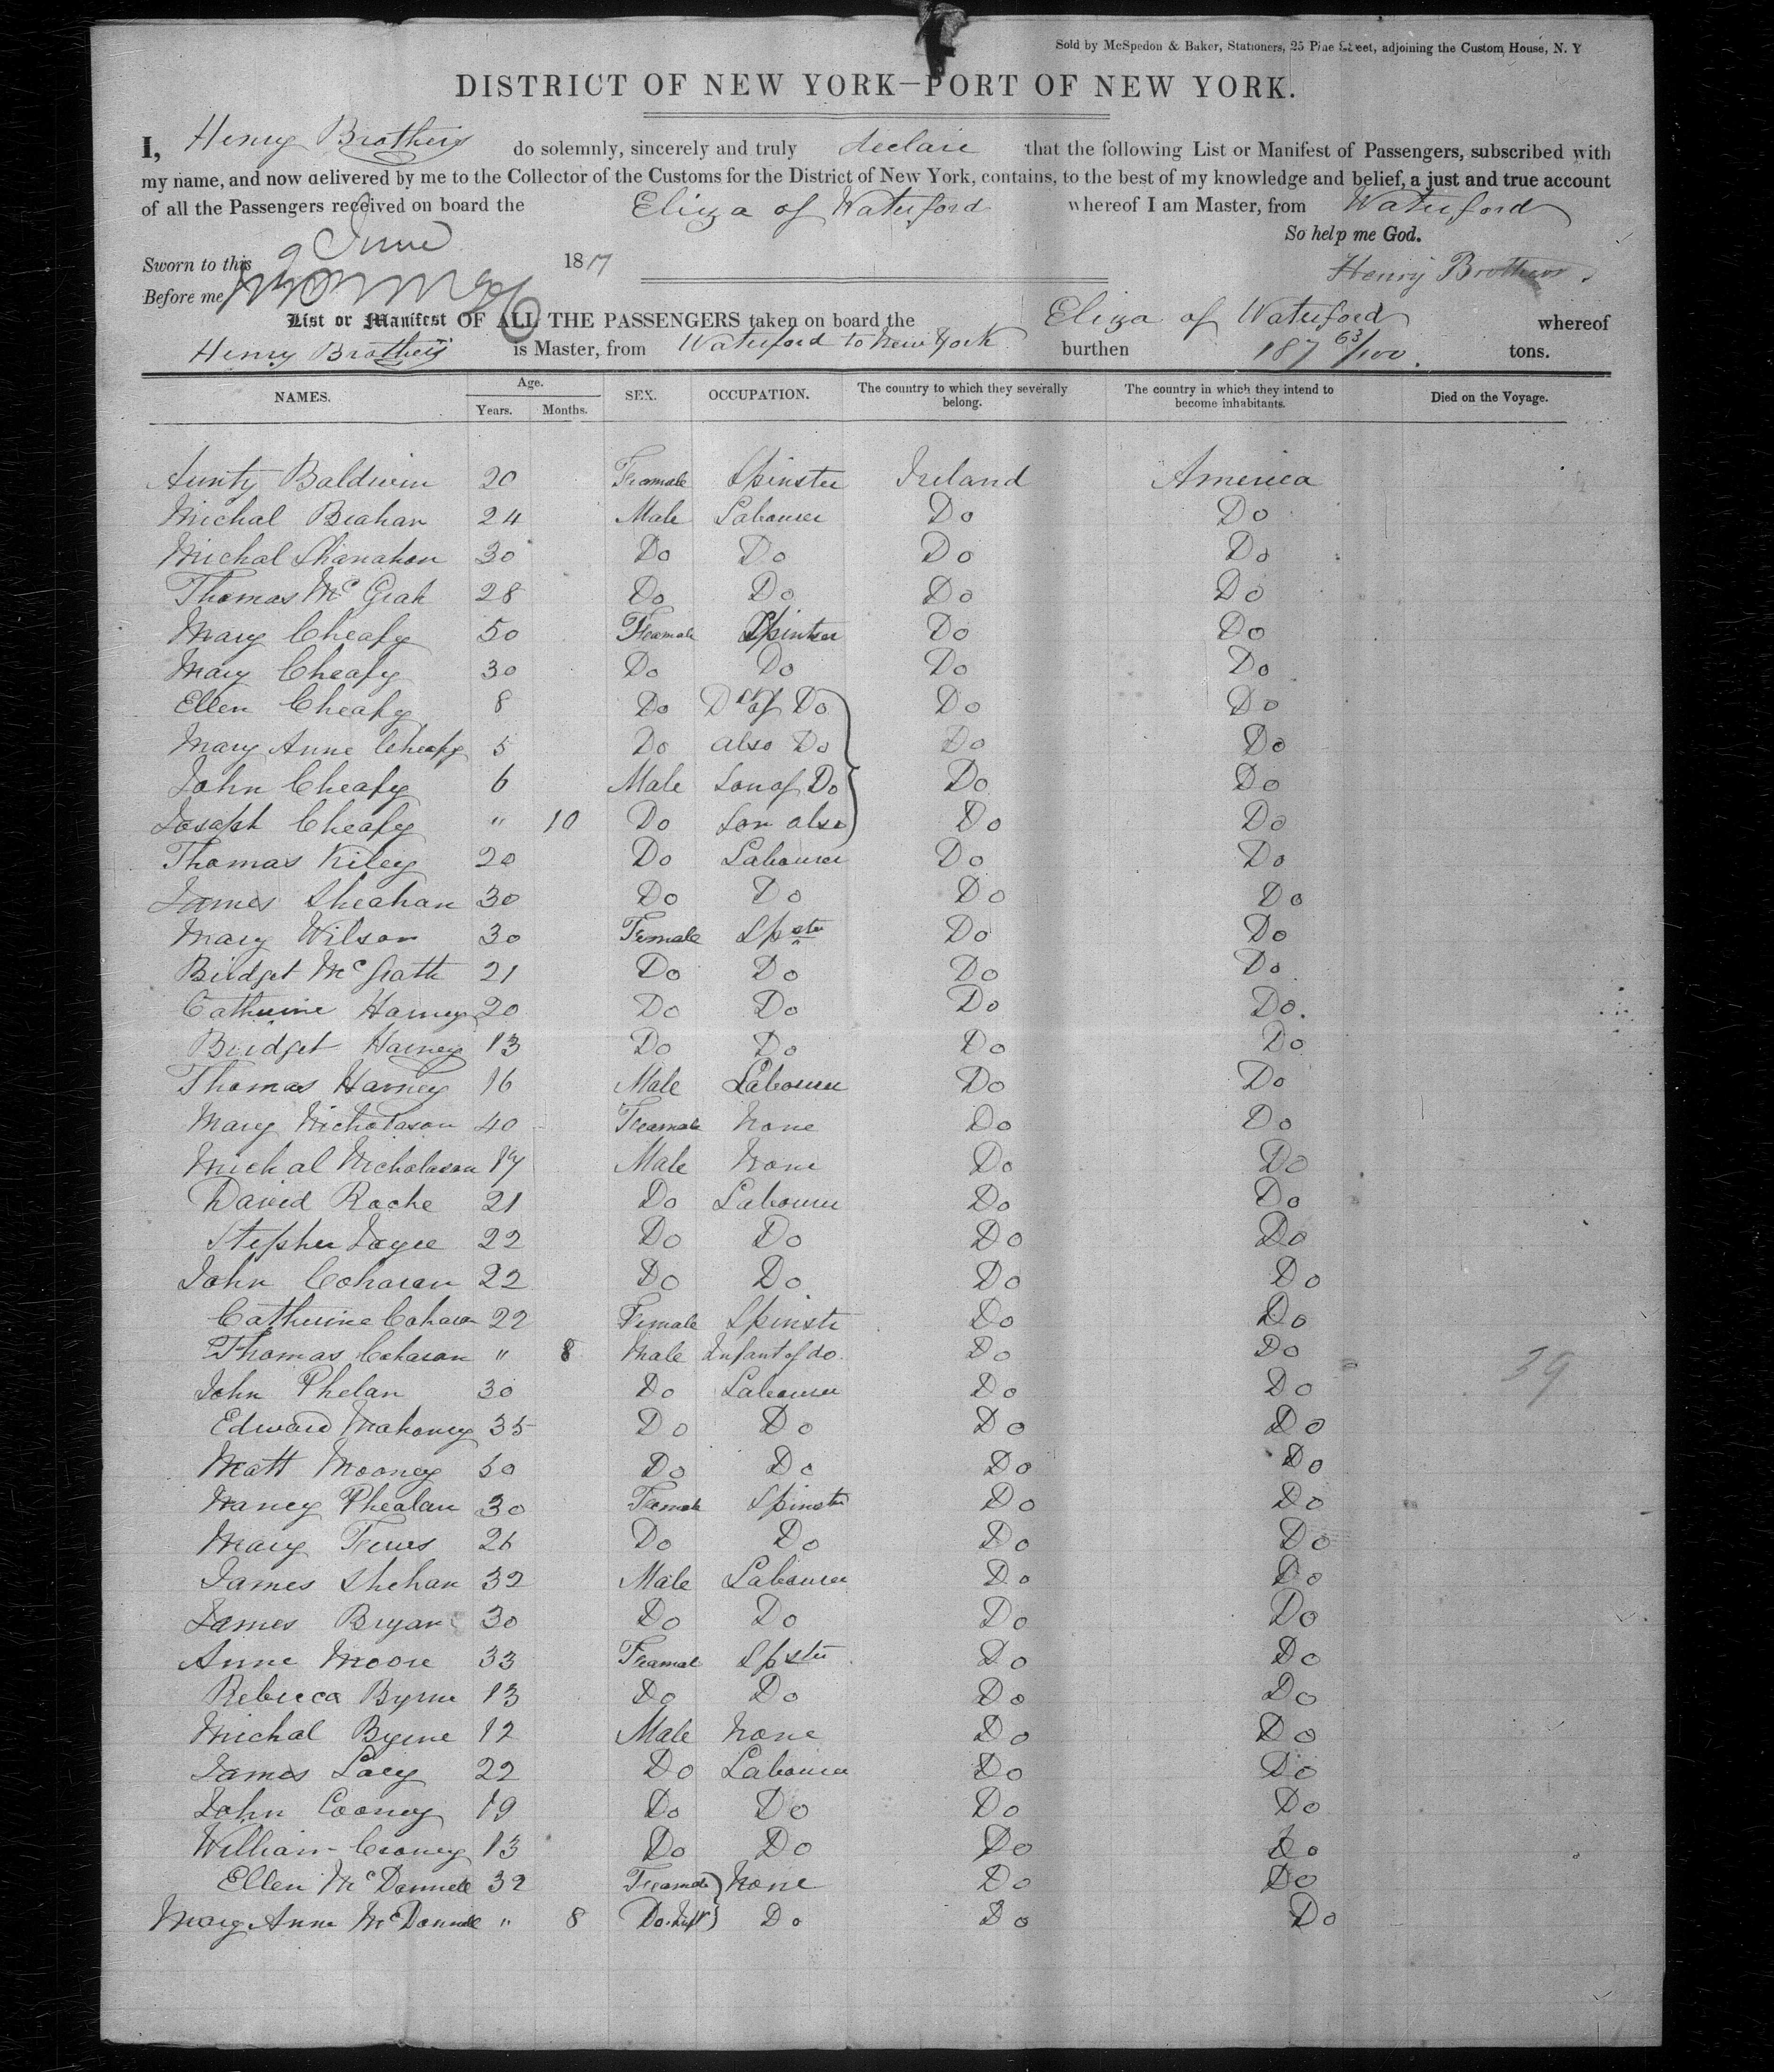 Sold by McSpedon & Baker, Stationers, 25 Pine Street, adjoining the Custom House, N. Y
DISTRICT OF NEW YORK—PORT OF NEW YORK.
I, Henry Brothers do solemnly, sincerely and truly declare that the following List or Manifest of Passengers, subscribed with
my name, and now delivered by me to the Collector of the Customs for the District of New York, contains, to the best of my knowledge and belief, a just and true account
of all the Passengers received on board the Eliza of Waterford whereof I am Master, from Waterford
So help me God.
Sworn to this 9 June 18
Henry Brothers
Before me
List or Manifest OF ALL THE PASSENGERS taken on board the Eliza of Waterford whereof
Henry Brothers is Master, from Waterford to New York burthen 187 63/100 tons.
NAMES. Age. Years. Months. SEX. OCCUPATION. The country to which they severally belong. The country in which they intend to become inhabitants. Died on the Voyage.
Aunty Baldwin 20 Feamale Spinster Ireland America
Michal Beahan 24 Male Labourer Do Do
Michal Shanahan 30 Do Do Do Do
Thomas Mc Grah 28 Do Do Do Do
Mary Cheafy 50 Feamale Spinster Do Do
Mary Cheafy 30 Do Do Do Do
Ellen Cheafy 8 Do Dr of Do Do Do
Mary Anne Cheafy 5 Do also Do Do Do
John Cheafy 6 Male Son of Do Do Do
Josaph Cheafy " 10 Do Son also Do Do
Thomas Kiley 20 Do Labourer Do Do
James Sheahan 30 Do Do Do Do
Mary Wilson 30 Female Spster Do Do
Bridget Mc Grath 21 Do Do Do Do
Catherine Harney 20 Do Do Do Do.
Bridget Harney 13 Do Do Do Do
Thomas Harney 16 Male Labourer Do Do
Mary Nicholason 40 Feamale None Do Do
Michal Nicholason 17 Male None Do Do
David Roche 21 Do Labourer Do Do
Stephen Joyce 22 Do Do Do Do
John Coharan 22 Do Do Do Do
Catherine Coharan 22 Female Spinster Do Do
Thomas Coharan " 8 Male Infant of do. Do Do
39
John Phelan 30 Do Labourer Do Do
Edward Mahoney 35 Do Do Do Do
Matt Mooney 50 Do Do Do Do
Nancy Phealan 30 Feamale Spinster Do Do
Mary 26 Do Do Do Do
James Shehan 32 Male Labourer Do Do
James Bryan 30 Do Do Do Do
Anne Moore 33 Feamal Spster Do Do
Rebecca Byrne 13 Do Do Do Do
Michal Byrne 12 Male None Do Do
James Lacy 22 Do Labourer Do Do
John Cooney 19 Do Do Do Do
William Cooney 13 Do Do Do Do
Ellen Mc Donnell 32 Feamale None Do Do
Mary Anne Mc Donnell " 8 Do. Inft Do Do Do